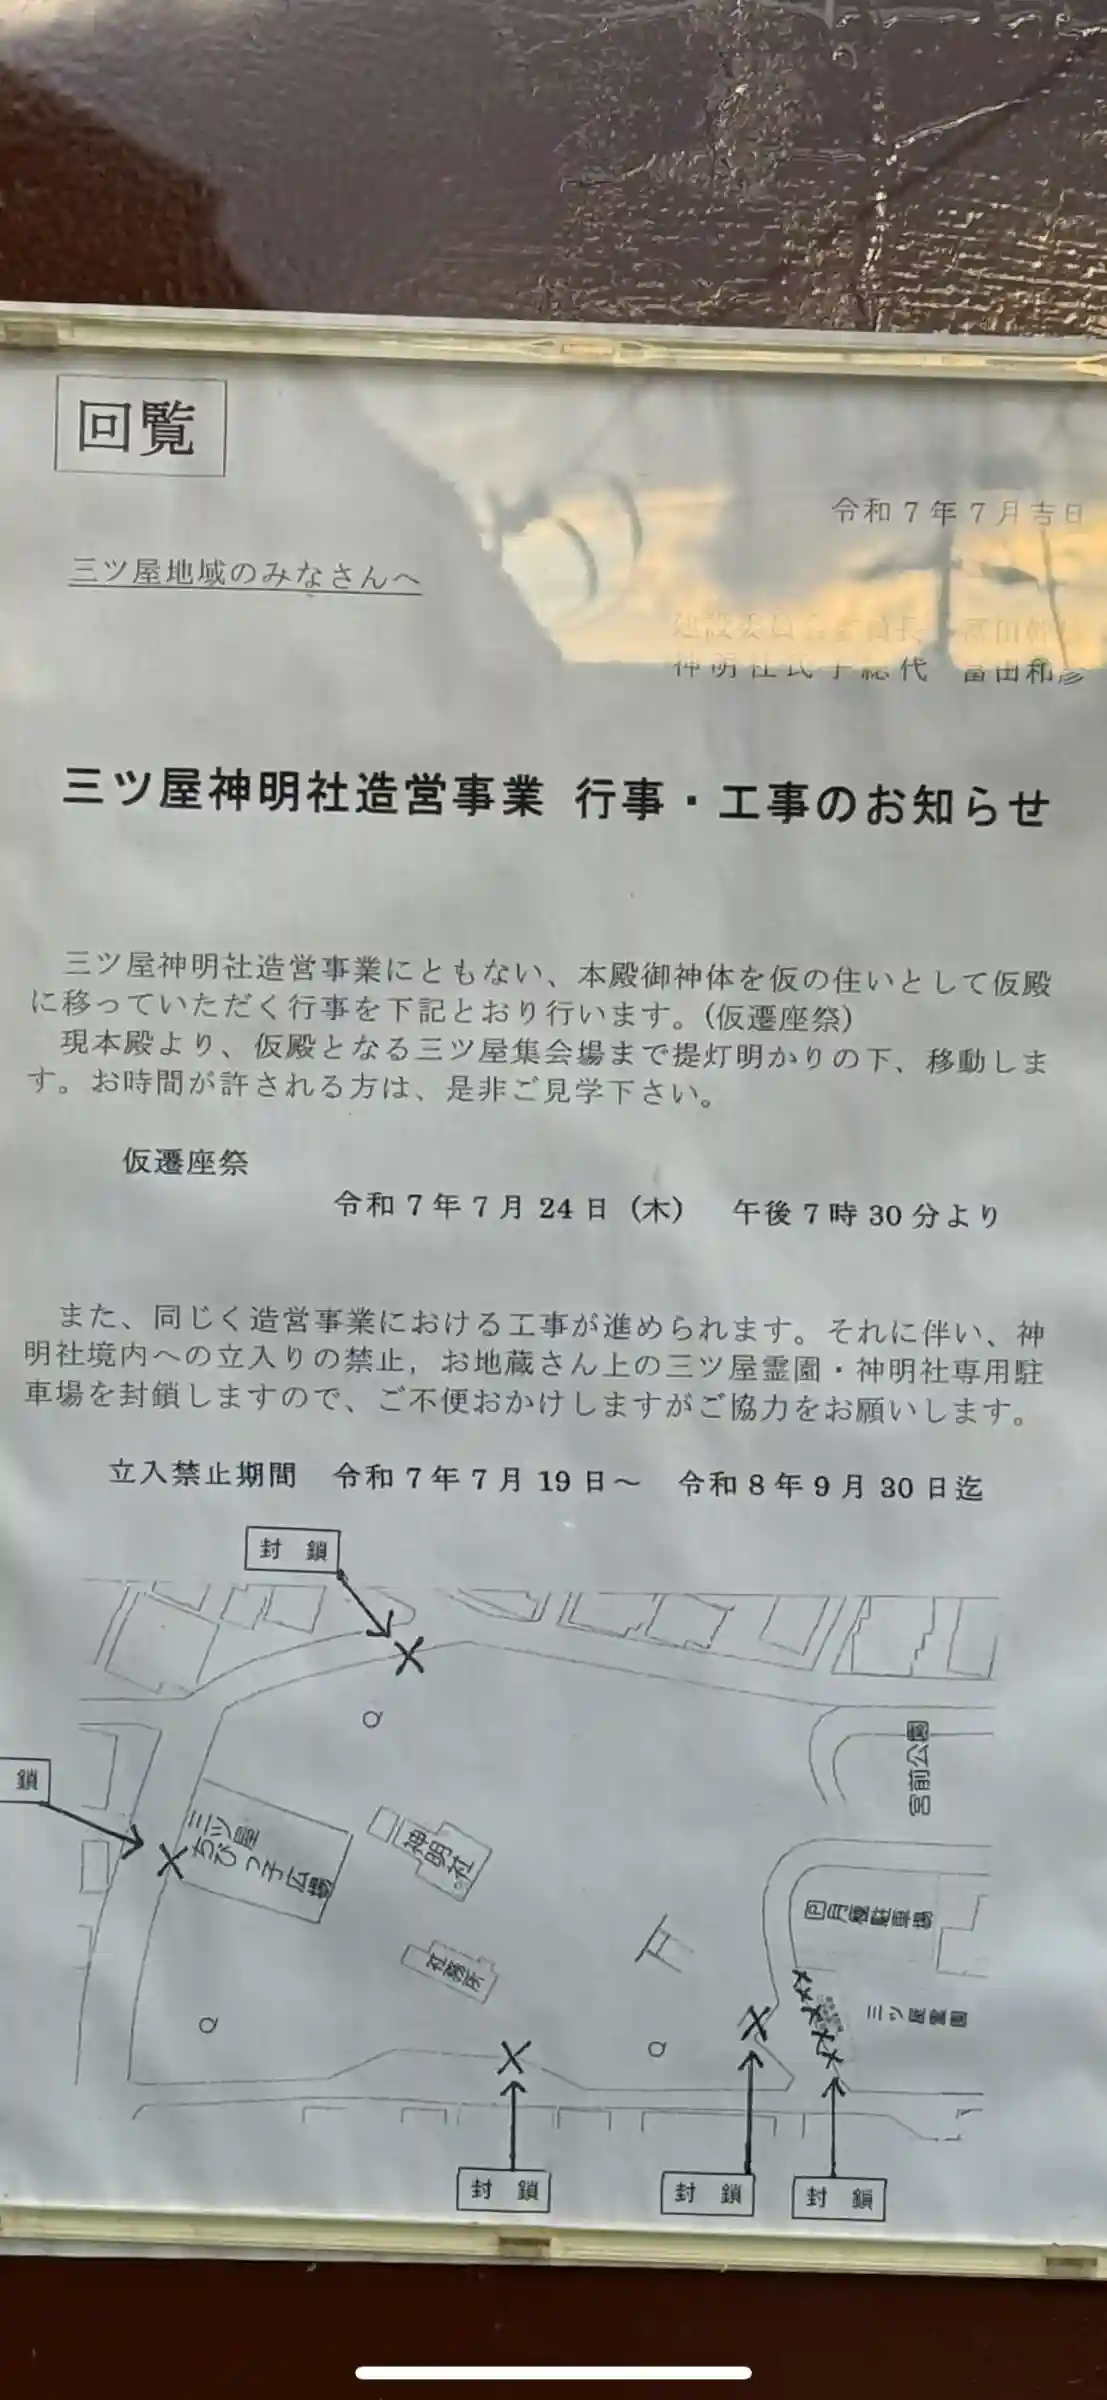 回覧
令和7年7月吉日
三ツ屋地域のみなさんへ
建設委員会委員長 富田幹
神明社氏子総代 富田和彦
三ツ屋神明社造営事業 行事・工事のお知らせ
三ツ屋神明社造営事業にともない、本殿御神体を仮の住いとして仮殿
に移っていただく行事を下記とおり行います。(仮遷座祭)
現本殿より、仮殿となる三ツ屋集会場まで提灯明かりの下、移動しま
す。お時間が許される方は、是非ご見学下さい。
仮遷座祭
令和7年7月24日(木) 午後7時30分より
また、同じく造営事業における工事が進められます。それに伴い、神
明社境内への立入りの禁止,お地蔵さん上の三ツ屋霊園・神明社専用駐
車場を封鎖しますので、ご不便おかけしますがご協力をお願いします。
立入禁止期間 令和7年7月19日～ 令和8年9月30日迄
封 鎖
宮前公園
鎖
三ツ屋
ちびっ子広場
神明社
月極駐車場
社務所
三ツ屋霊園
封 鎖
封 鎖
封 鎖